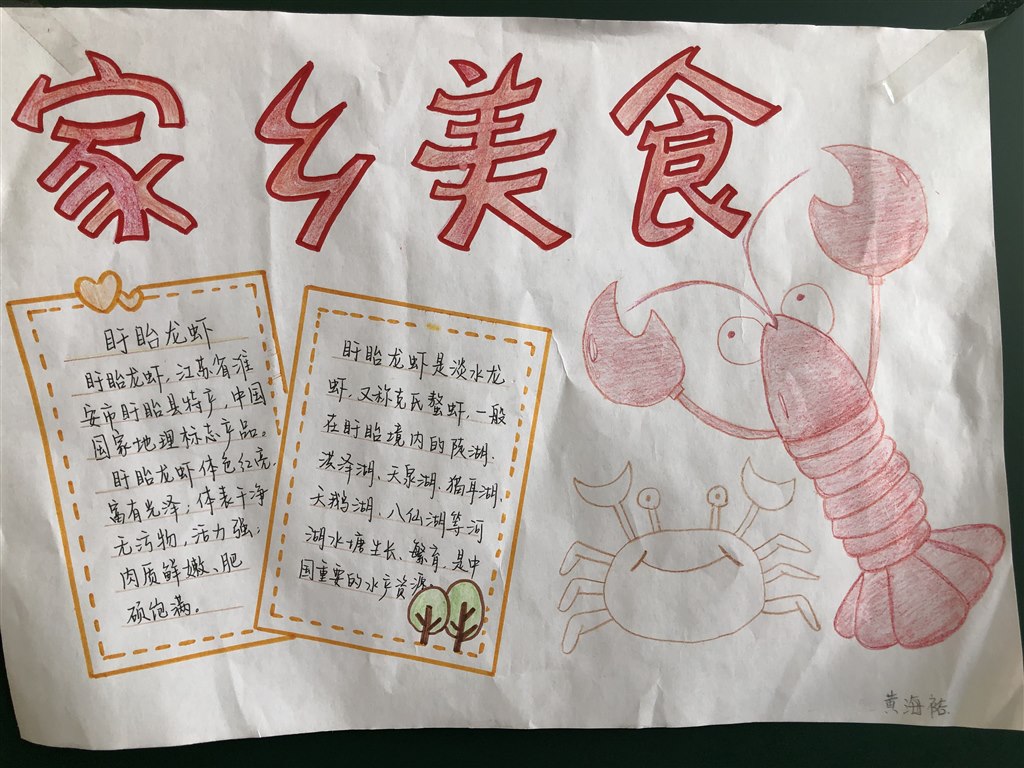 家乡美食
盱眙龙虾
盱眙龙虾，江苏省淮
安市盱眙县特产，中国
国家地理标志产品。
盱眙龙虾体色红亮，
富有光泽，体表干净
无污物，活力强，
肉质鲜嫩、肥
硕饱满。
盱眙龙虾是淡水龙
虾，又称克氏螯虾，一般
在盱眙境内的陡湖、
洪泽湖、天泉湖、猫耳湖、
天鹅湖、八仙湖等河
湖水塘生长、繁育，是中
国重要的水产资源。
黄海祐